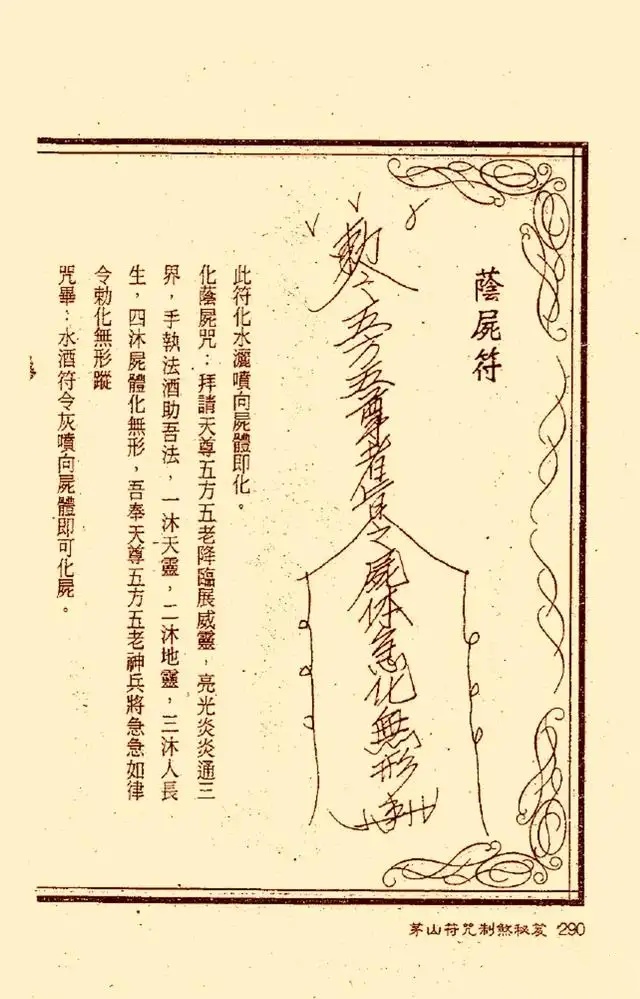 蔭屍符
勅令五方五尊者旨之屍体急化無形
此符化水灑噴向屍體即化。
化蔭屍咒：拜請天尊五方五老降臨展威靈，亮光炎炎通三
界，手執法酒助吾法，一沐天靈，二沐地靈，三沐人長
生，四沐屍體化無形，吾奉天尊五方五老神兵將急急如律
令勅化無形蹤
咒畢：水酒符令灰噴向屍體即可化屍。
茅山符咒制煞秘笈 290